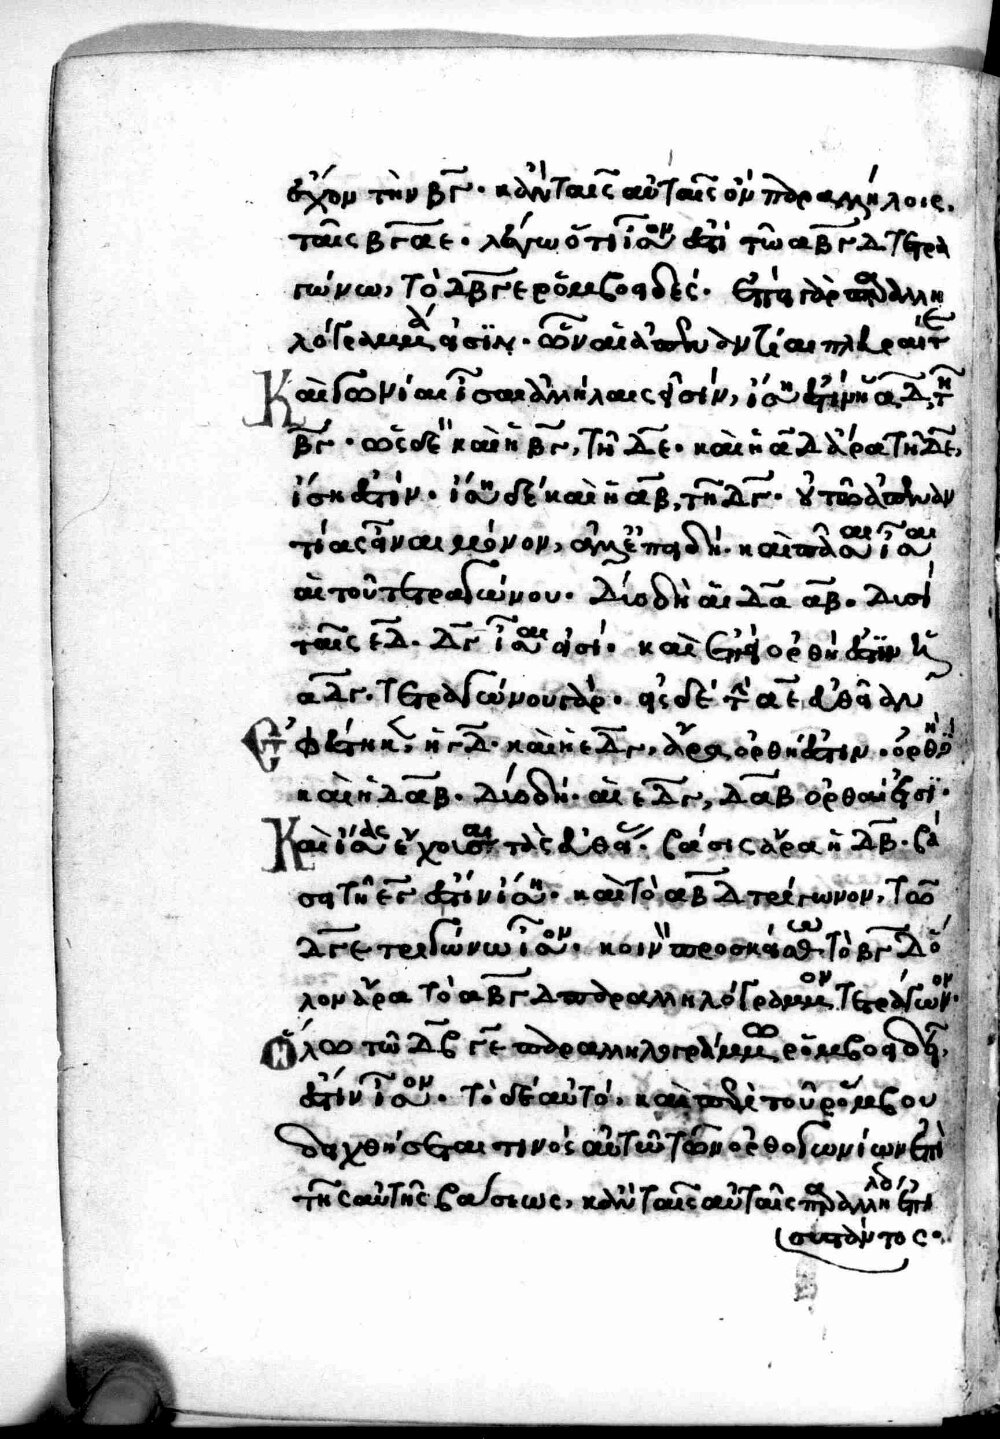 ἔχον τὴν βγ. κἀν ταῖς αὐταῖς ὂν παραλλήλοις.
ταῖς βγ αε. λέγω ὅτι ἴσον ἐστὶ τῶ αβγδ τετρα
γώνω, τὸ δβγε ῥομβοειδές. ἐπεὶ γὰρ παραλλη
λόγραμμά εἰσϊν. ὧν αἱ ἀπεναντίαι πλευραί τε
καὶ γωνίαι ἴσαι ἀλλήλαις εἰσίν, ἴση ἐστὶν ἡ αδ, τῆ
βγ. ὡς δὲ καὶ ἡ βγ, τῆ δε. καὶ ἡ αδ ἄρα τῆ δε,
ἴση ἐστίν. ἴση δὲ καὶ ἡ αβ, τῆ δγ. οὐ τῶ ἀπεναν
τίας εἶναι μόνον, ἀλλ' ἐπειδὴ. καὶ πᾶσαι ἴσαι
αἱ τοῦ τετραγώνου. δύο δὴ αἱ δα αβ. δυσὶ
ταῖς εδ. δγ ἴσαι εἰσί. καὶ ἐπεὶ ὀρθή ἐστϊν ἡ
αδγ. τετραγώνου γάρ. εἰς δὲ τὴν αε εὐθεῖαν
ἐφέστηκεν, ἡ γδ. καὶ ἡ εδγ, ἄρα ὀρθή ἐστιν. ὀρθὴ δὲ
καὶ ἡ δαβ. δύο δὴ. αἱ εδγ, δαβ ὀρθαί εἰσϊ.
Καὶ ἴσας ἔχουσαι τὰς εὐθείας. βάσις ἄρα ἡ δβ. βά
σει τῆ εγ ἐστὶν ἴση. καὶ τὸ αβδ τρίγωνον, τῶ
δγε τριγώνω ἴσον. κοινὸν προσκείσθω τὸ βγδ ὅ
λον ἄρα τὸ αβγδ παραλληλόγραμμον τετράγωνον.
ὅλω τῶ δβγε παραλληλογράμμω ῥομβοειδεῖ,
ἐστὶν ἴσον. τὸ δὲ αὐτὸ. καὶ περὶ τοῦ ῥόμβου
δειχθήσεται τινὸς αὐτῶ τῶν ὀρθογωνίων ἐπὶ
τῆς αὐτῆς βάσεως, κἀν ταῖς αὐταῖς παραλλήλοις ἐπι
συστάντος.